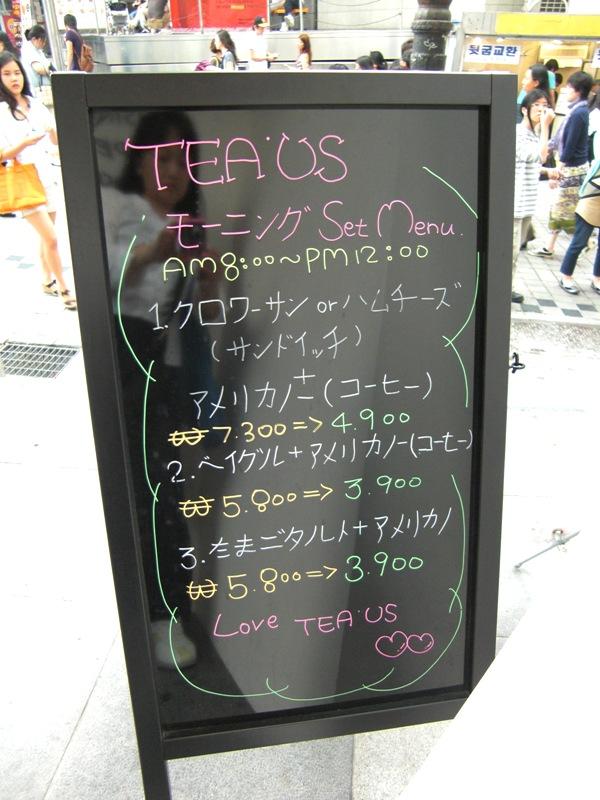 뒷굽교환
TEA·US
モーニング Set Menu.
AM8:00~PM12:00
1.クロワーサン or ハムチーズ
(サンドイッチ)
+
アメリカノー(コーヒー)
₩7.300=> 4.900
2.ベイグル+アメリカノー(コーヒー)
₩ 5.800=> 3.900
3.たまごタルト+アメリカノ
₩ 5.800=> 3.900
Love TEA·US